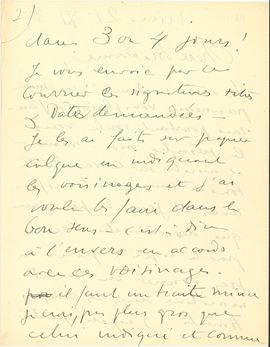 2)
dans 3 ou 4 jours !
Je vous envoie par ce
courrier les signatures titres
& Dates demandées –
Je les ai faits sur papier
calque en indiquant
les voisinages et j'ai
voulu les faire dans le
bon sens – c'est à dire
à l'envers en accords
avec ces voisinages.
il faut un trait mince
je crois, pas plus gros que
celui indiqué et comme